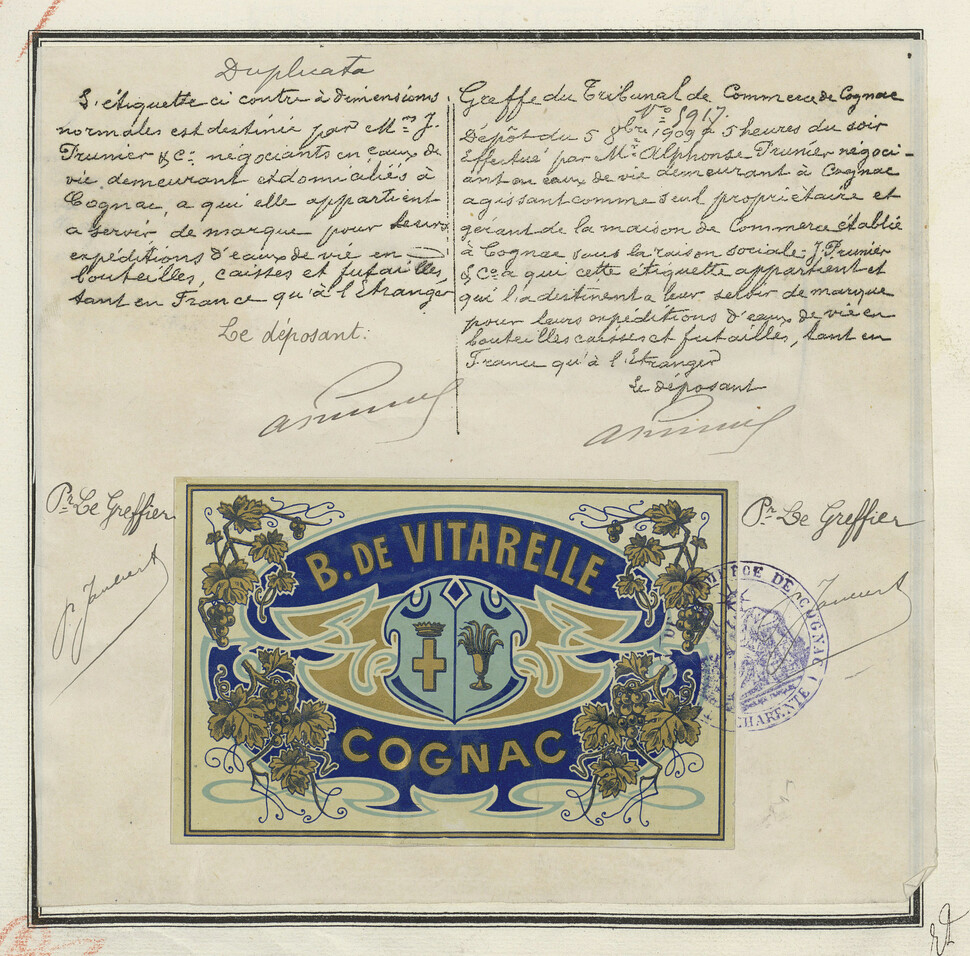 Duplicata
L'étiquette ci contre à dimensions
normales est destinée par Mrs J.
Prunier & Co négociants en eaux de
vie, demeurant et domiciliés à
Cognac, a qui elle appartient
a servir de marque pour leurs
expéditions d'eaux de vie en
bouteilles, caisses et futailles,
tant en France qu'à l'Etranger
Le déposant:
Greffe du Tribunal de Commerce de Cognac
No 5917.
Dépôt du 5 9bre 1909 à 5 heures du soir
Effectué par Mr Alphonse Prunier négoci-
ant en eaux de vie demeurant à Cognac
agissant comme seul propriétaire et
gérant de la maison de Commerce établie
à Cognac sous la raison sociale: J. Prunier
& Co à qui cette étiquette appartient et
qui la destinent a leur servir de marque
pour leurs expéditions d'eaux de vie en
bouteilles caisses et futailles, tant en
France qu'à l'Etranger
Le déposant
Pr Le Greffier
Pr Le Greffier
B. DE VITARELLE
COGNAC
DE COGNAC
CHARENTE